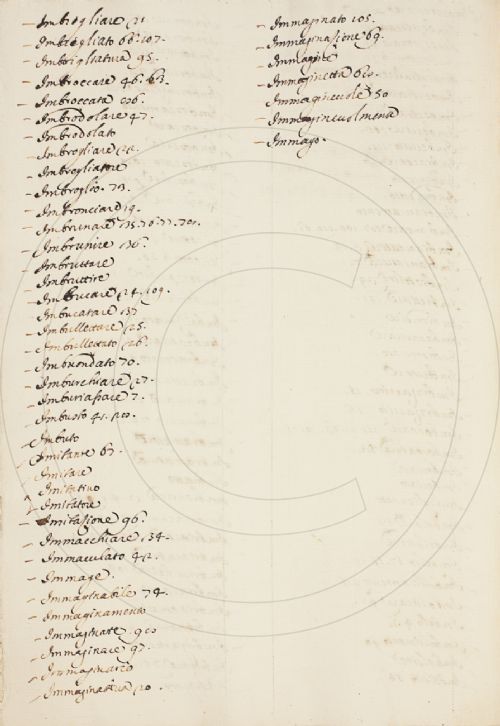 Imbrigliare 21
Imbrigliato 68. 107.
Imbrigliatura 95.
Imbroccare 46. 63.
Imbroccata 106.
Imbrodolare 47.
Imbrodolato
Imbrogliare
Imbrogliatore
Imbroglio. 73.
Imbronciare 19.
Imbrunare
Imbrunire 136.
Imbruttare
Imbruttire
Imbucare 24. 109.
Imbucatare 137
Imbullettare 25.
Imbullettato 26.
Imbuondato 70.
Imburchiare 27.
Imburiassare 7.
Imbusto 41. 100.
Imbuto
Imitante 67.
Imitare
Imitativo
Imitatore
Imitazione 96.
Immacchiare 134.
Immaculato 42.
Immage.
Immaginabile 74.
Immaginamento
Immaginante
Immaginare 97.
Immaginario
Immaginativa
Immaginato 105.
Immaginazione 69.
Immagine
Immaginetta
Immaginevole 50
Immaginevolmente
Immago.